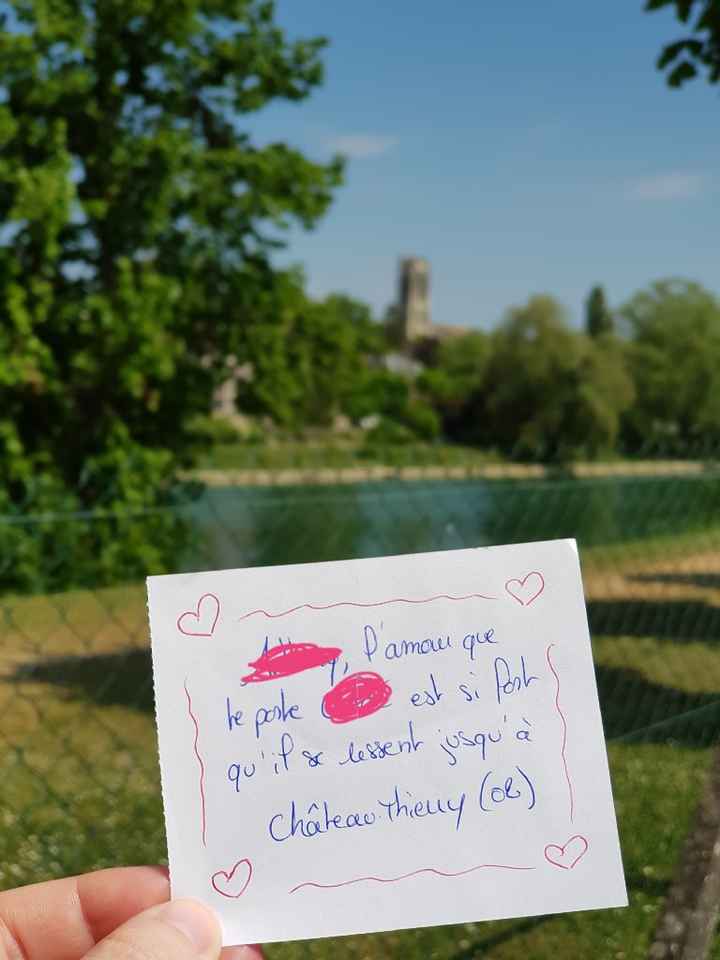 , l'amour que
te porte est si fort
qu'il se ressent jusqu'à
Château-Thierry (02)